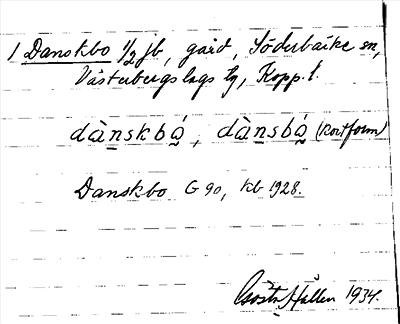 1 Danskbo 1/2 jb, gård, Söderbärke sn,
Västerbergslags tg, Kopp. l.
dànskbó̤, dànsbó̤ (kortform)
Danskbo G 90, kb 1928.
Gösta Hallen 1934.